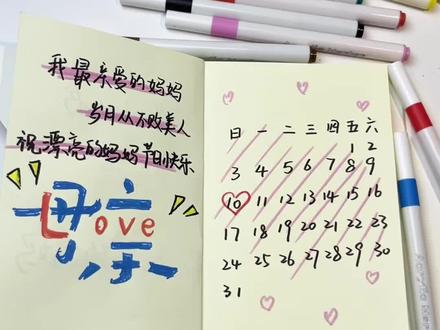 我最亲爱的妈妈
岁月从不败美人
祝漂亮的妈妈节日快乐
母亲
Love
日 一 二 三 四 五 六
1 2
3 4 5 6 7 8 9
10 11 12 13 14 15 16
17 18 19 20 21 22 23
24 25 26 27 28 29 30
31